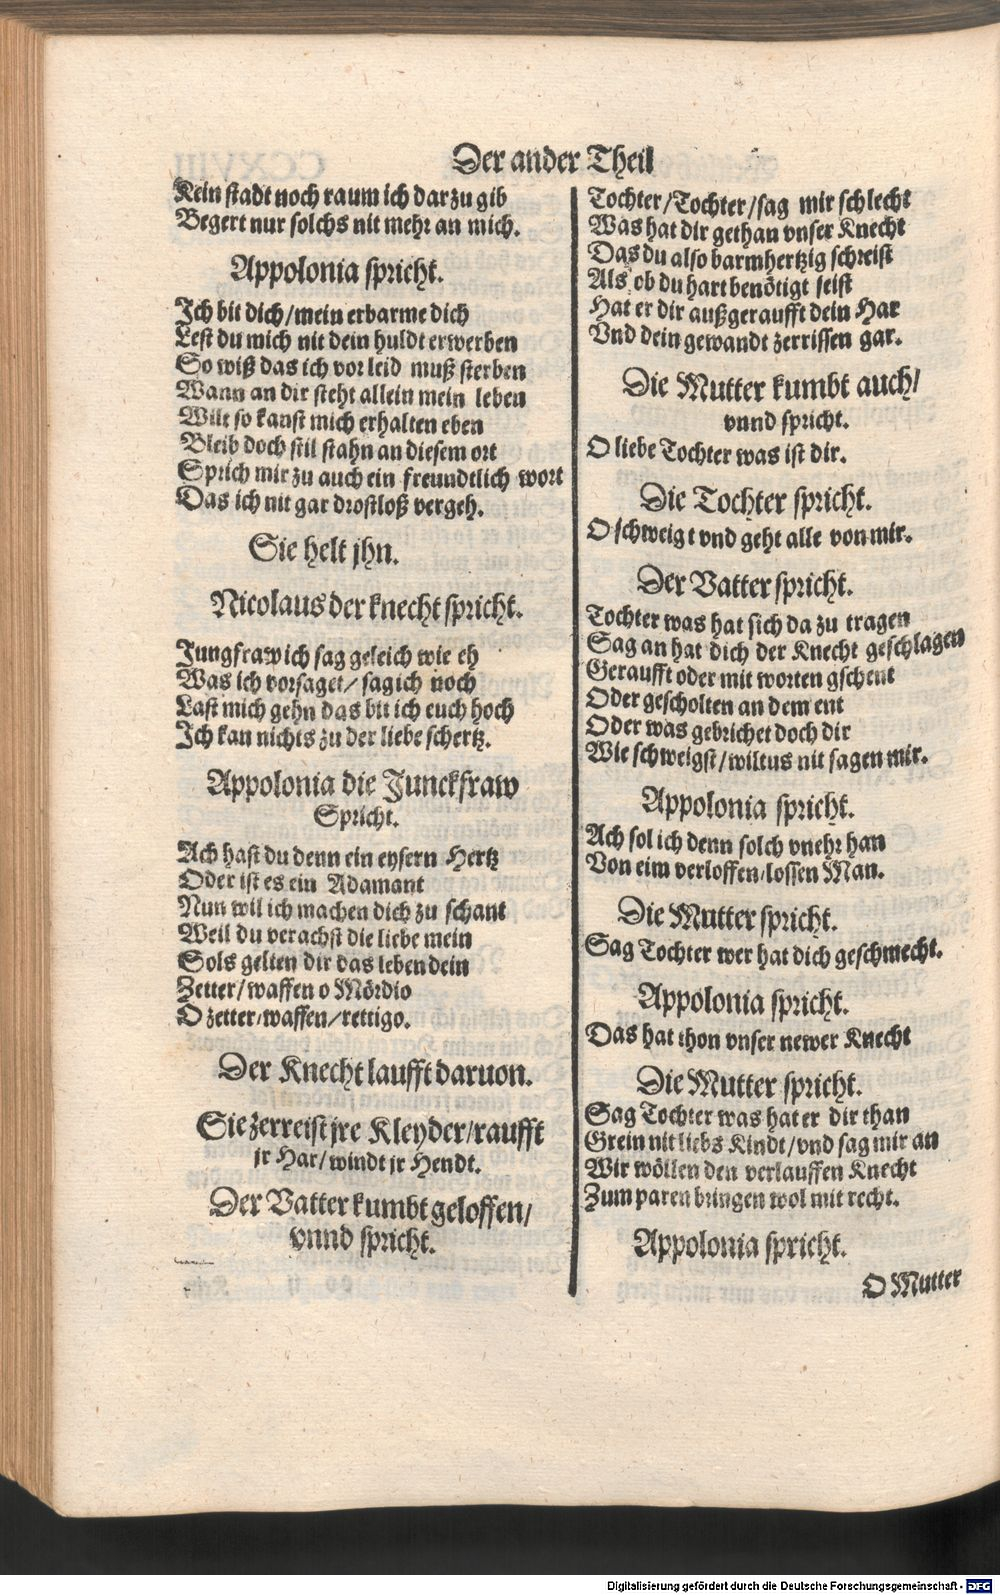 Der ander Theil
Kein stadt noch raum ich darzu gib
Begert nur solchs nit mehr an mich.
Appolonia spricht.
Ich bit dich/mein erbarme dich
Lest du mich nit dein huldt erwerben
So wiß das ich vor leid muß sterben
Wann an dir steht allein mein leben
Wilt so kanst mich erhalten eben
Bleib doch stil stahn an diesem ort
Sprich mir zu auch ein freundtlich wort
Das ich nit gar drostloß vergeh.
Sie helt jhn.
Nicolaus der knecht spricht.
Jungfraw ich sag geleich wie eh
Was ich vorsaget/ sag ich noch
Last mich gehn das bit ich euch hoch
Ich kan nichts zu der liebe schertz.
Appolonia die Junckfraw
Spricht.
Ach hast du denn ein eysern Hertz
Oder ist es ein Adamant
Nun wil ich machen dich zu schant
Weil du verachst die liebe mein
Sols gelten dir das leben dein
Zetter/ waffen o Mördio
O zetter/waffen/rettigo.
Der Knecht laufft daruon.
Sie zerreist jre Kleyder/raufft
jr Har/ windt jr Hendt.
Der Vatter kumbt geloffen/
vnnd spricht.
Tochter/Tochter/sag mir schlecht
Was hat dir gethan vnser Knecht
Das du also barmhertzig schreist
Als ob du hart benötigt seist
Hat er dir außgeraufft dein Har
Vnd dein gewandt zerrissen gar.
Die Mutter kumbt auch/
vnnd spricht.
O liebe Tochter was ist dir.
Die Tochter spricht.
O schweigt vnd geht alle von mir.
Der Vatter spricht.
Tochter was hat sich da zu tragen
Sag an hat dich der Knecht geschlagen
Geraufft oder mit worten gschent
Oder gescholten an dem ent
Oder was gebrichet doch dir
Wie schweigst/wiltus nit sagen mir.
Appolonia spricht.
Ach sol ich denn solch vnehr han
Von eim verloffen/lossen Man.
Die Mutter spricht.
Sag Tochter wer hat dich geschmecht.
Appolonia spricht.
Das hat thon vnser newer Knecht
Die Mutter spricht.
Sag Tochter was hat er dir than
Grein nit liebs Kindt/vnd sag mir an
Wir wöllen den verlauffen Knecht
Zum paren bringen wol mit recht.
Appolonia spricht.
O Mutter
Digitalisierung gefördert durch die Deutsche Forschungsgemeinschaft - DFG